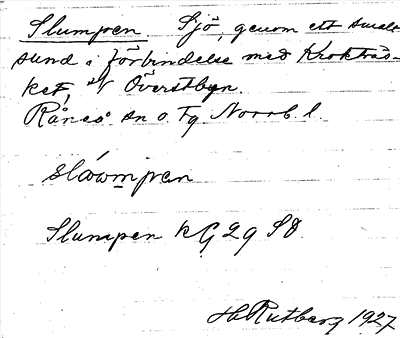 Slumpen. Sjö, genom ett smalt
sund i förbindelse med Krokträs-
ket, v Överstbyn.
Råneå sn o. Tg Norrb. l.
slåumpen
Slumpen KG 29 SO
H Rutberg 1927